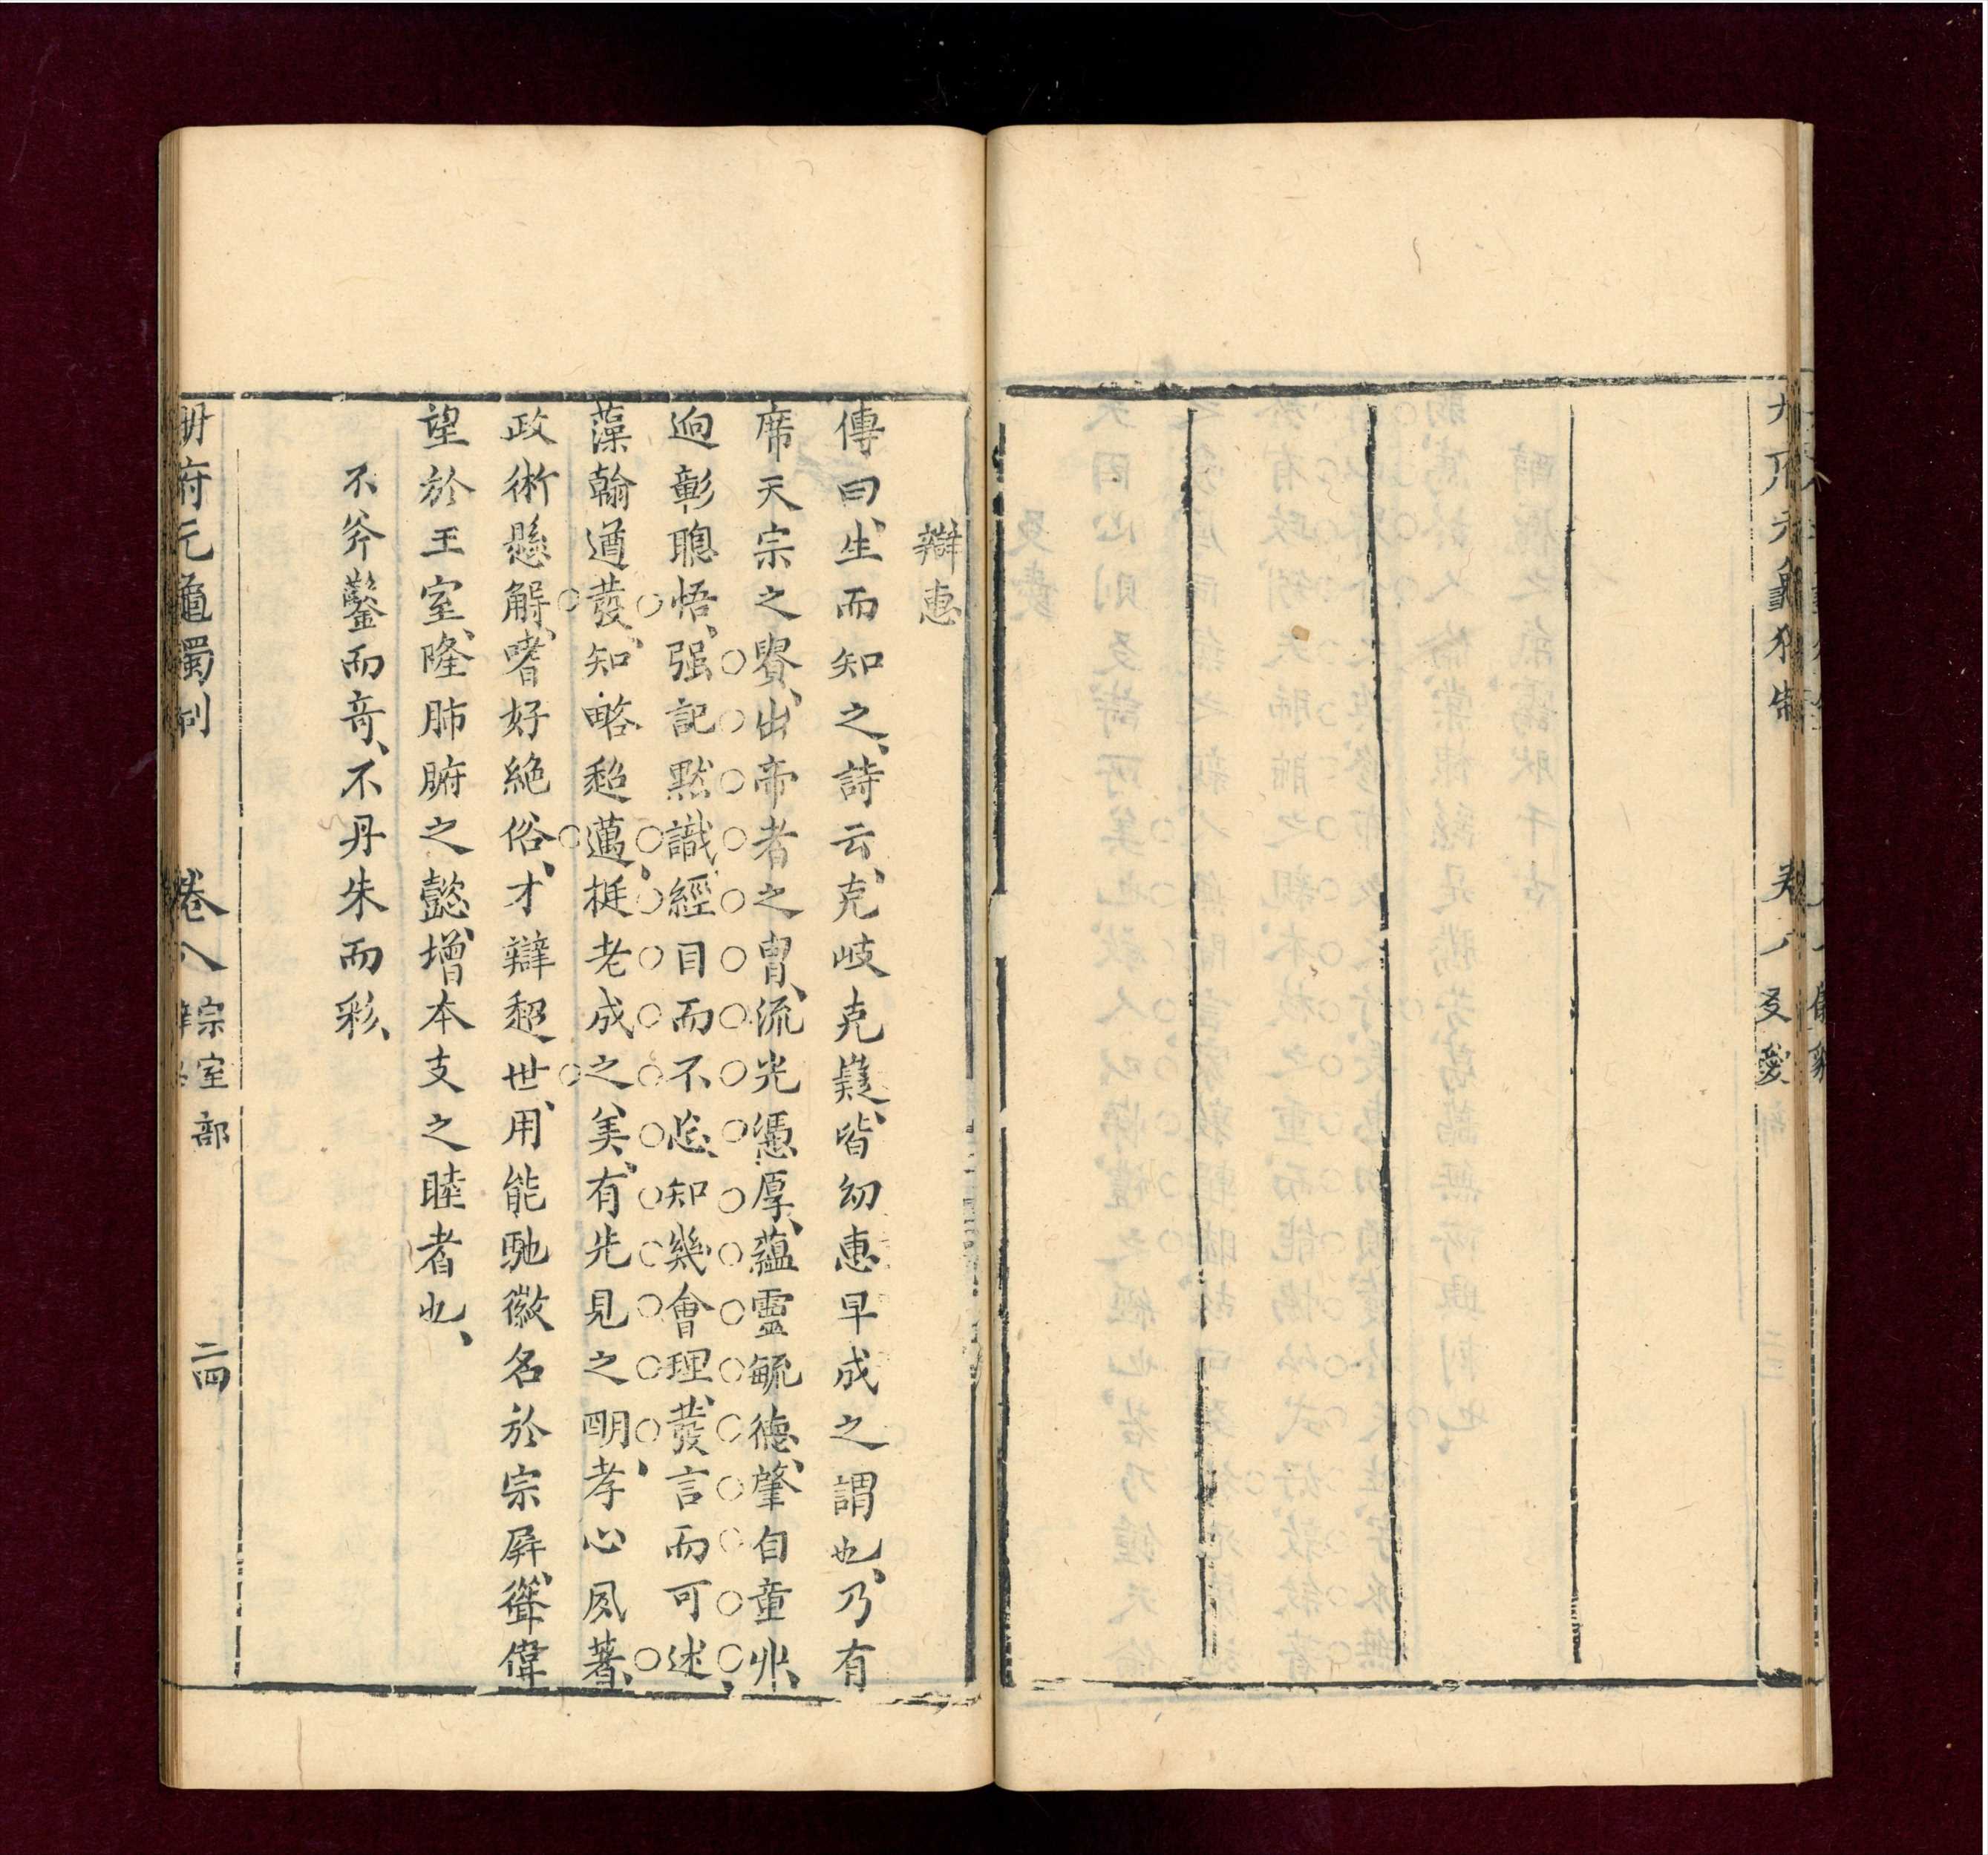 友愛
辯惠
傳曰、生而知之、詩云、克岐克嶷、皆幼惠早成之謂也、乃有
席天宗之貴、出帝者之胄、流光憑厚、蘊靈毓德、肇自童丱、
逈彰聰悟、强記黙識、經目而不忘、知幾會理、發言而可述、
藻翰遒發、知略超邁、挺老成之美、有先見之明、孝心夙著、
政術懸解、嗜好絶俗、才辯超世、用能馳徽名於宗屏、聳偉
望於王室、隆肺腑之懿、增本支之睦者也、
不斧鑿而奇、不丹朱而彩、
册府元龜獨制 卷八 宗室部 二四